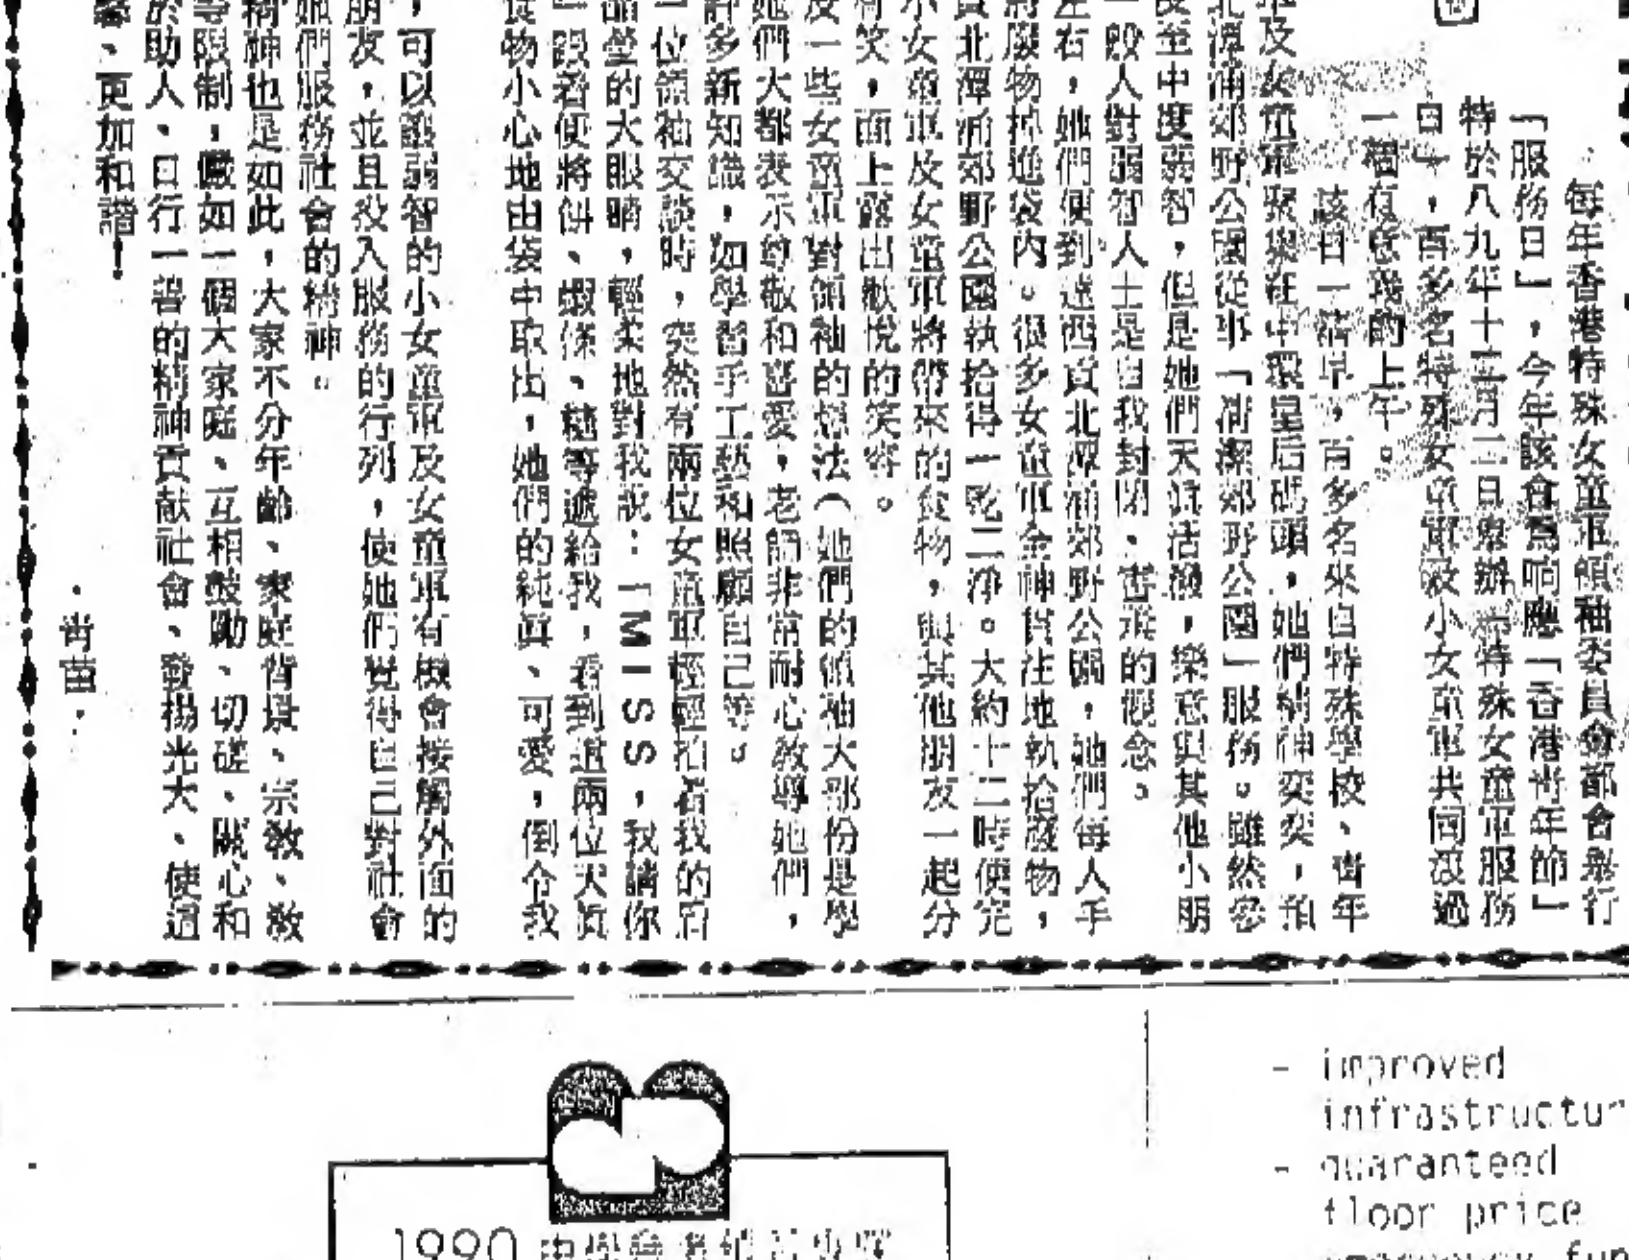 每年香港特殊女童軍領袖委員會都會舉行
「服務日」，今年該會爲响應「香港青年節」
特於八九年十二月三日舉辦「特殊女童軍服務
日」，百多名特殊女童軍及小女童軍共同渡過
一個有意義的上午。
該日一清早，百多名來自特殊學校、青年
軍及女童軍聚集在中環皇后碼頭，她們精神奕奕，預
北潭涌郊野公園從事「清潔郊野公園」服務。雖然參
及至中度弱智，但是她們天真活潑，樂意與其他小朋
一般人對弱智人士是自我封閉、害羞的觀念。
左右，她們便到達西貢北潭涌郊野公園，她們每人手
將廢物掉進袋內。很多女童軍全神貫注地執拾廢物，
貢北潭涌郊野公園執拾得一乾二淨。大約十二時便完
小女童軍及女童軍將帶來的食物，與其他朋友一起分
有笑，面上露出歡悅的笑容。
及一些女童軍對領袖的想法（她們的領袖大部份是學
她們大都表示尊敬和喜愛，老師非常耐心教導她們，
許多新知識，如學習手工藝和照顧自己等。
一位領袖交談時，突然有兩位女童軍輕輕拍着我的肩
晶瑩的大眼睛，輕柔地對我說：「MISS，我請你
」說着便將餅、蝦條、糖等遞給我，看到這兩位天真
食物小心地由袋中取出，她們的純眞、可愛，倒令我
，可以讓弱智的小女童軍及女童軍有機會接觸外面的
朋友，並且投入服務的行列，使她們覺得自己對社會
她們服務社會的精神。
精神也是如此，大家不分年齡、家庭背景、宗教、敎
等限制，儼如一個大家庭、互相鼓勵、切磋、關心和
於助人、日行一善的精神貢献社會、發揚光大、使這
馨、更加和諧！
·靑苗·
- improved
infrastructur
- guaranteed
floor price
1990